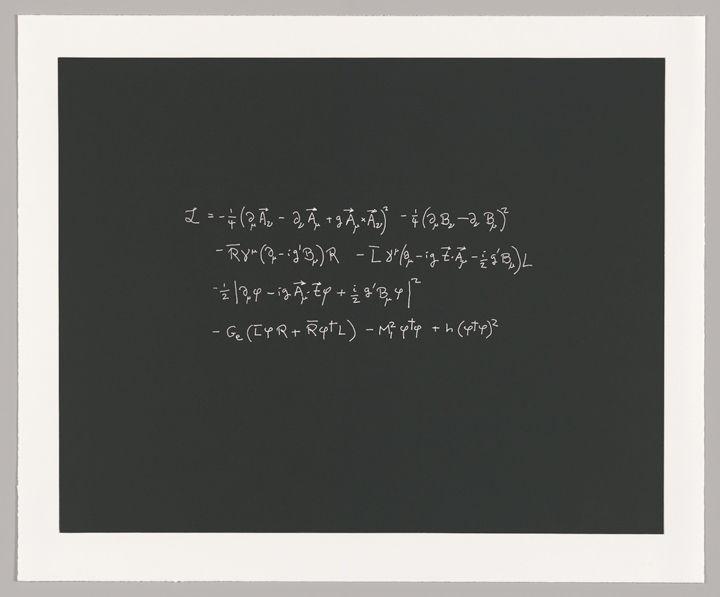 ℒ = -¼(∂_μ A⃗_ν - ∂_ν A⃗_μ + g A⃗_μ × A⃗_ν)² - ¼(∂_μ B_ν - ∂_ν B_μ)²
- R̄ γ^μ (∂_μ - ig′B_μ) R - L̄ γ^μ (∂_μ - ig t⃗·A⃗_μ - i/2 g′B_μ) L
- ½ |∂_μ φ - ig A⃗_μ·t⃗ φ + i/2 g′B_μ φ|²
- G_e (L̄ φ R + R̄ φ† L) - M₁² φ†φ + h (φ†φ)²